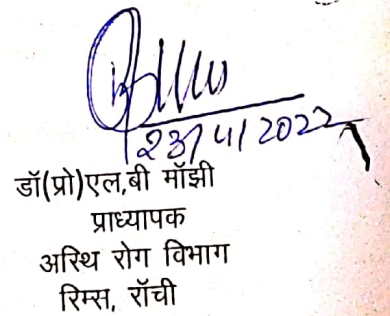 23/4/2022
डॉ(प्रो)एल,बी मॉझी
प्राध्यापक
अस्थि रोग विभाग
रिम्स, रॉची